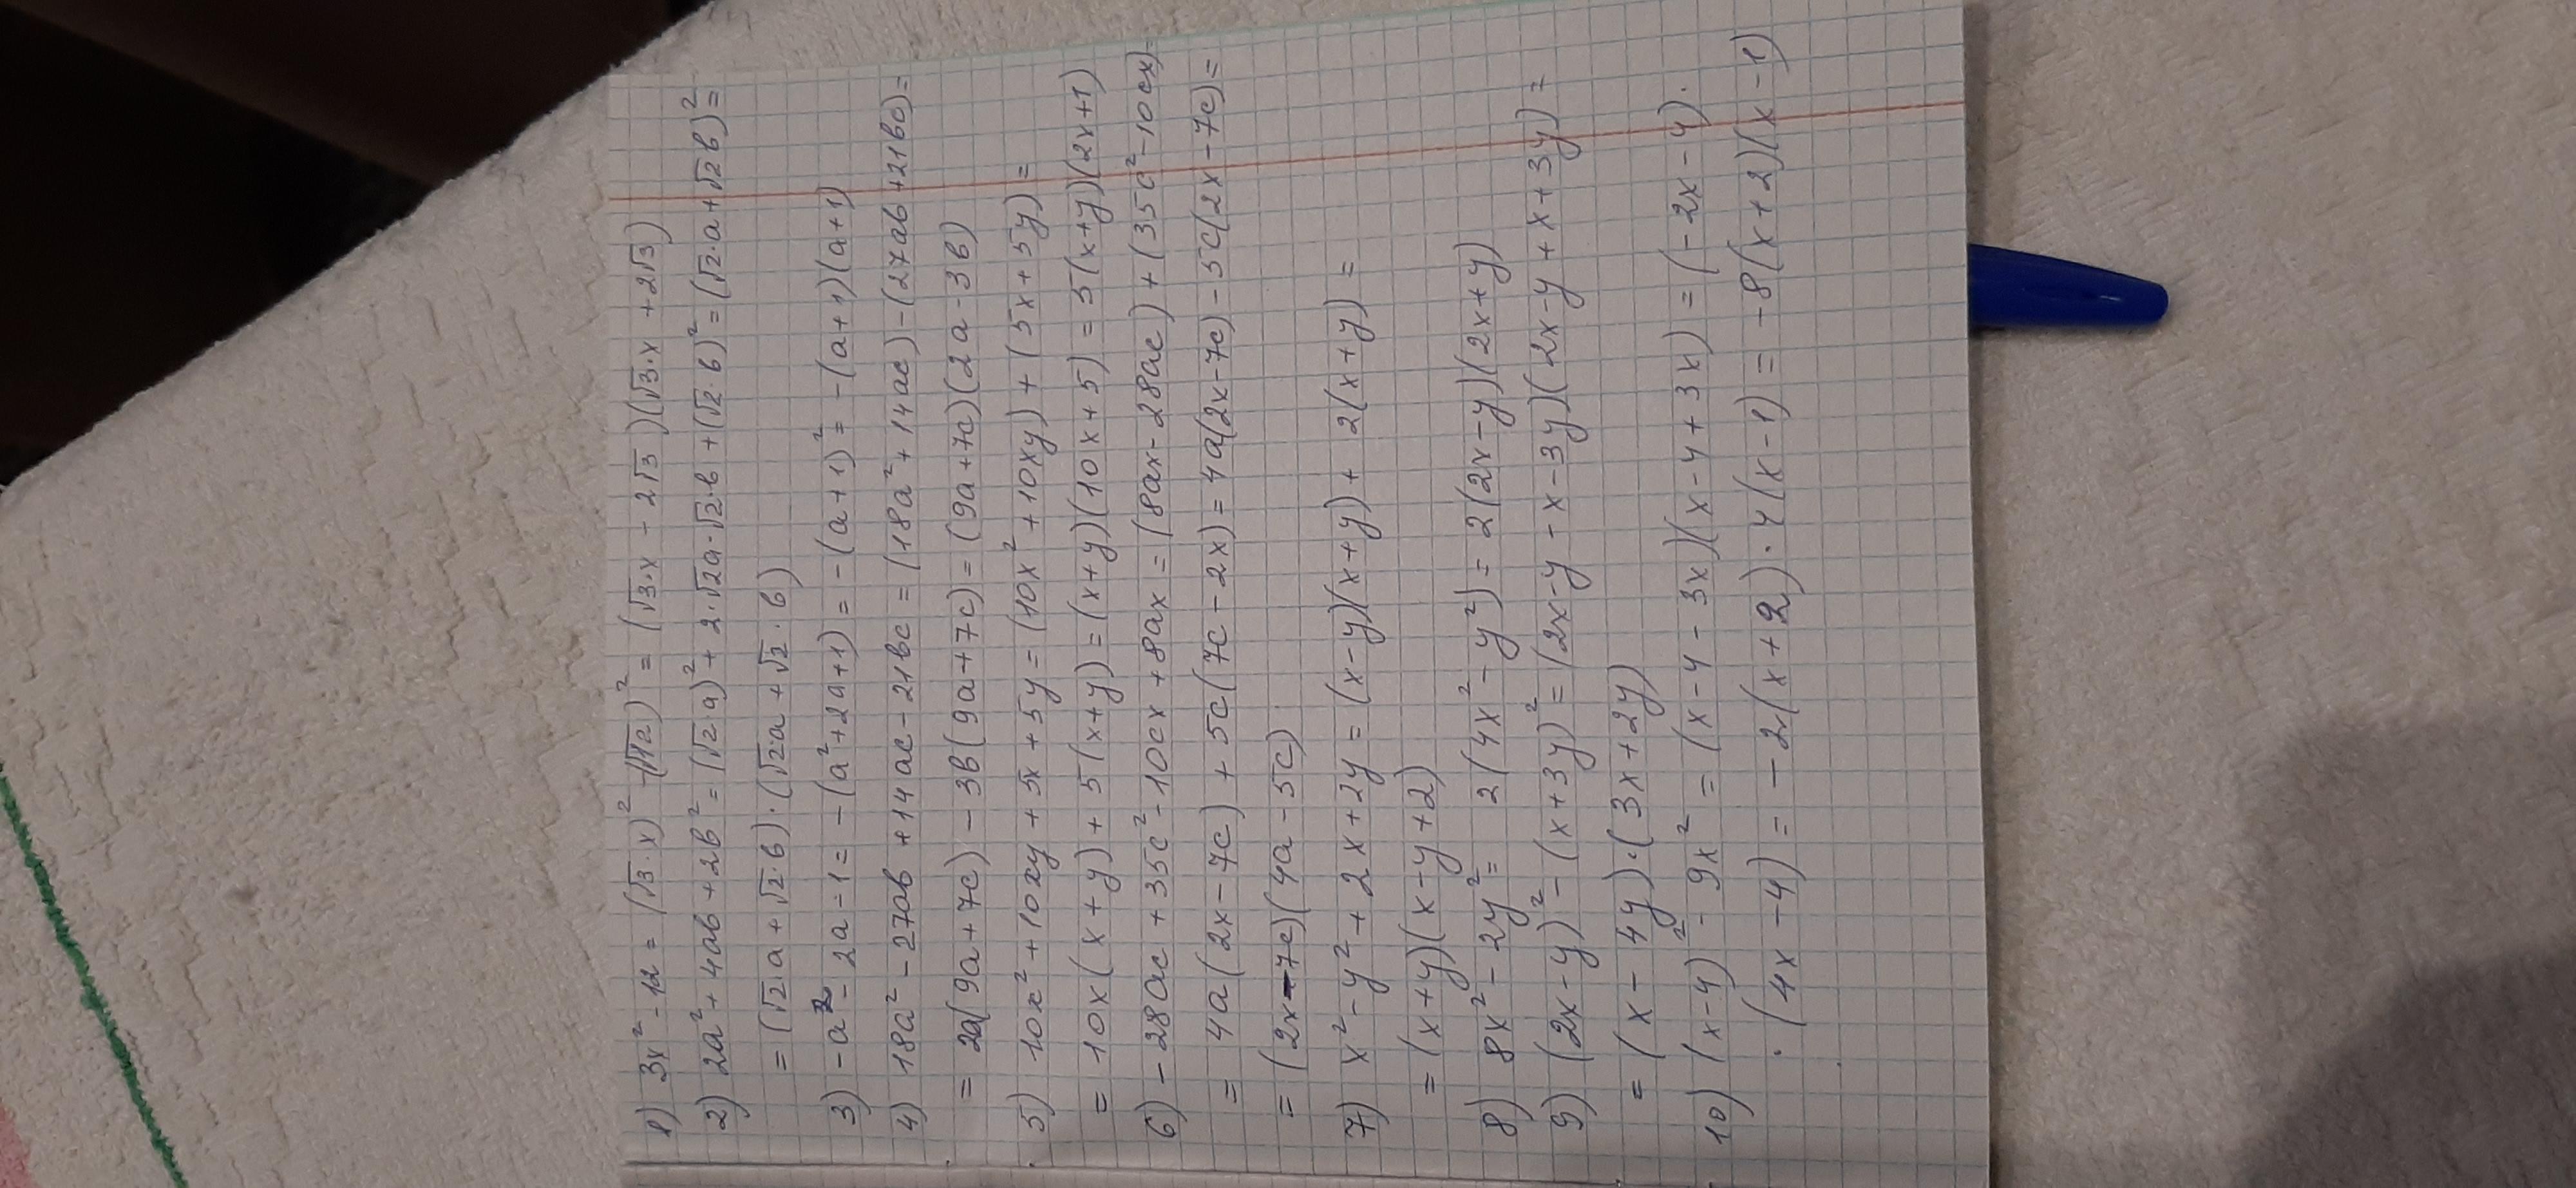 1) 3x² - 12 = (√3·x)² - (√12)² = (√3·x - 2√3)(√3·x + 2√3)
2) 2a² + 4ab + 2b² = (√2·a)² + 2·√2a·√2·b + (√2·b)² = (√2·a + √2b)² =
= (√2a + √2·b)·(√2a + √2·b)
3) -a² - 2a - 1 = -(a² + 2a + 1) = -(a + 1)² = -(a + 1)(a + 1)
4) 18a² - 27ab + 14ac - 21bc = (18a² + 14ac) - (27ab + 21bc) =
= 2a(9a + 7c) - 3b(9a + 7c) = (9a + 7c)(2a - 3b)
5) 10x² + 10xy + 5x + 5y = (10x² + 10xy) + (5x + 5y) =
= 10x(x + y) + 5(x + y) = (x + y)(10x + 5) = 5(x + y)(2x + 1)
6) -28ac + 35c² - 10cx + 8ax = (8ax - 28ac) + (35c² - 10cx) =
= 4a(2x - 7c) + 5c(7c - 2x) = 4a(2x - 7c) - 5c(2x - 7c) =
= (2x - 7c)(4a - 5c)
7) x² - y² + 2x + 2y = (x - y)(x + y) + 2(x + y) =
= (x + y)(x - y + 2)
8) 8x² - 2y² = 2(4x² - y²) = 2(2x - y)(2x + y)
9) (2x - y)² - (x + 3y)² = (2x - y - x - 3y)(2x - y + x + 3y) =
= (x - 4y)·(3x + 2y)
10) (x - 4)² - 9x² = (x - 4 - 3x)(x - 4 + 3x) = (-2x - 4)·
·(4x - 4) = -2(x + 2)·4(x - 1) = -8(x + 2)(x - 1)